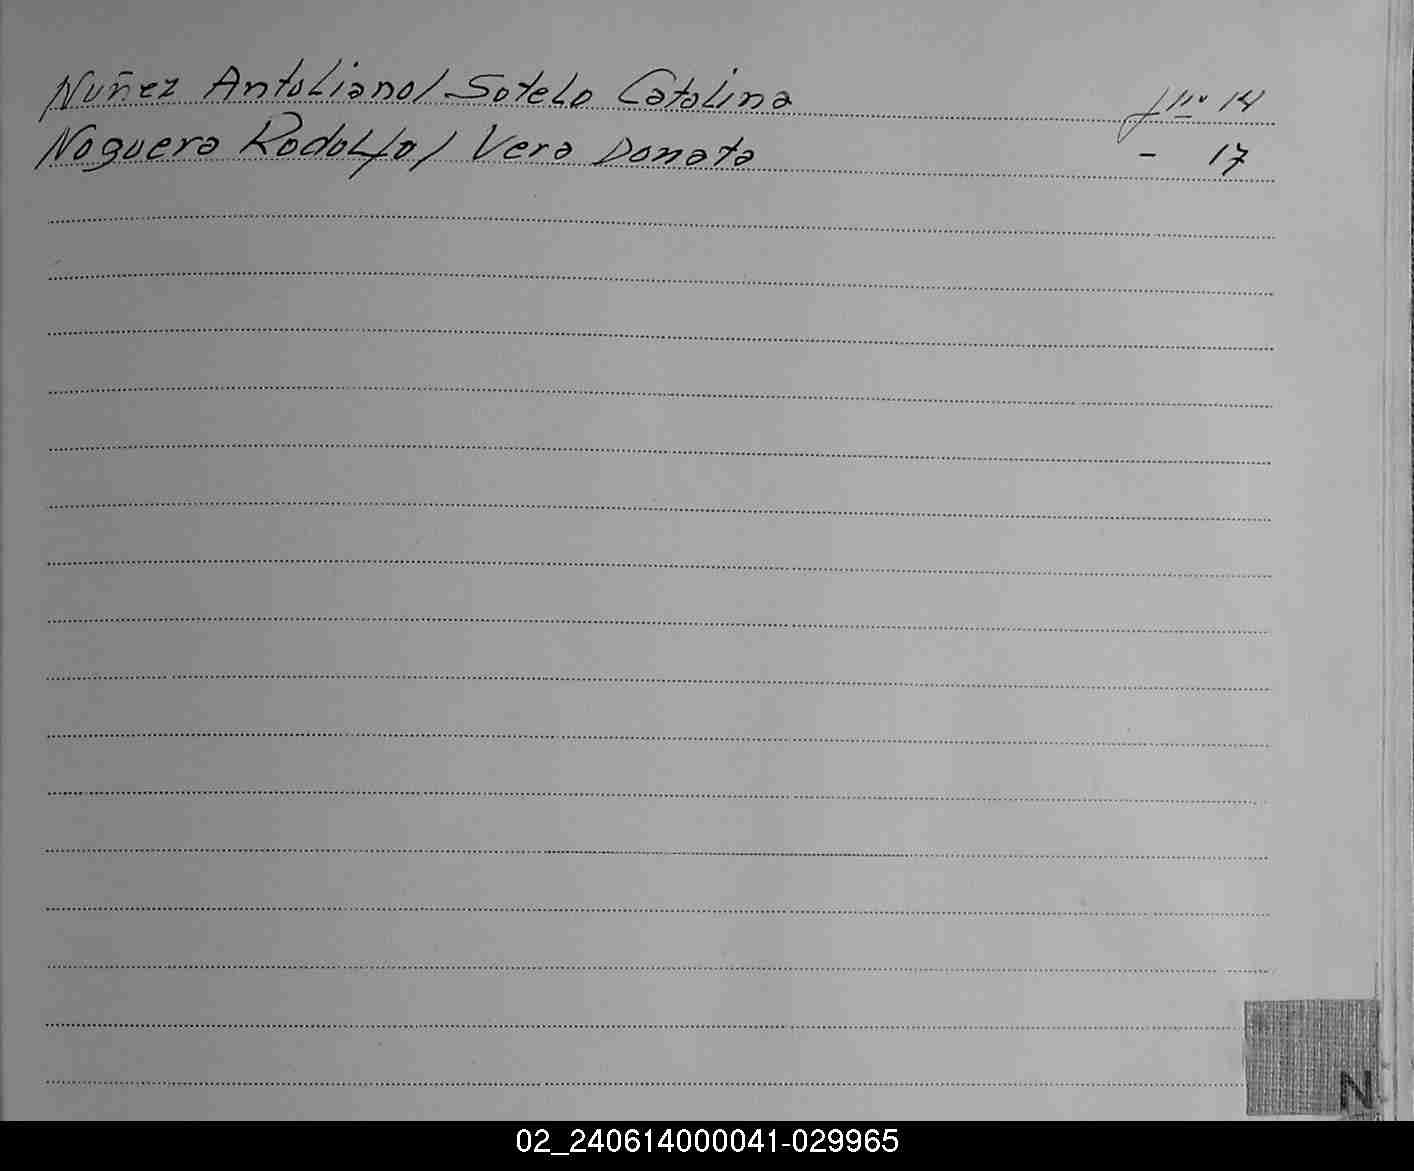 Nuñez Antoliano/ Sotelo Catalina fno 14
Noguera Rodolfo/ Vera Donata - 17
N
02_240614000041-029965